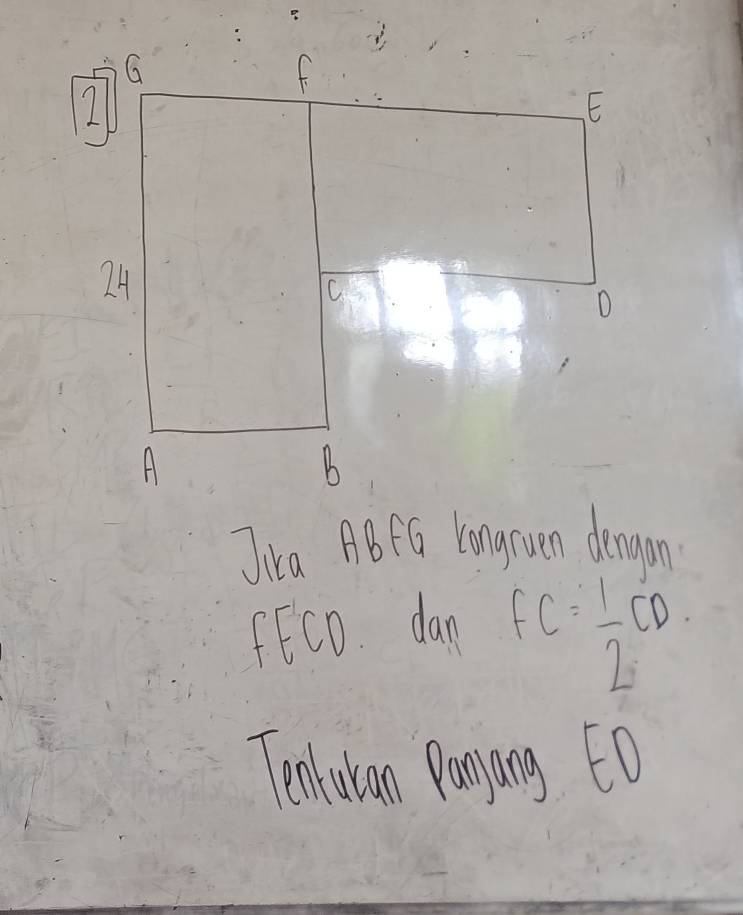 2
G F E
24
C D
A B
Jika ABFG kongruen dengan
FECD. dan FC = 1/2 CD.
Tentukan Panjang ED